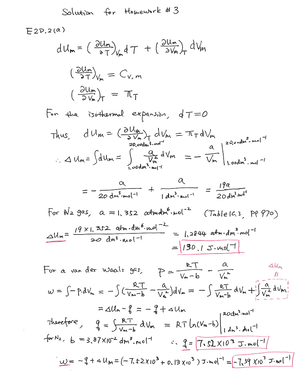 Solution for Homework #3
E2D.2(a)
dUm = (∂Um/∂T)Vm dT + (∂Um/∂Vm)T dVm
(∂Um/∂T)Vm = Cv,m
(∂Um/∂Vm)T = πT
For the isothermal expansion, dT=0
Thus, dUm = (∂Um/∂Vm)T dVm = πT dVm
∴ ΔUm = ∫dUm = ∫ a/Vm² dVm = - a/Vm |
= - a/20 dm³·mol⁻¹ + a/1 dm³·mol⁻¹ = 19a/20 dm³mol⁻¹
For N₂ gas, a = 1.352 atm dm⁶·mol⁻² (Table 1C.3, PP 970)
ΔUm = 19 × 1.352 atm·dm⁶·mol⁻²/20 dm³·mol⁻¹ = 1.2844 atm·dm³·mol⁻¹
= 130.1 J·mol⁻¹
For a van der Waals gas, P = RT/Vm-b - a/Vm² ΔUm
w = ∫-PdVm = -∫(RT/Vm-b - a/Vm²)dVm = -∫ RT/Vm-b dVm + ∫ a/Vm² dVm
= ΔUm - q = -q + ΔUm
Therefore, q = ∫ RT/Vm-b dVm = RT ln(Vm-b) |
for N₂, b = 3.87×10⁻² dm³·mol⁻¹ ∴ q = 7.52 × 10³ J·mol⁻¹
∴ w = -q + ΔUm = (-7.52×10³ + 0.13×10³) J·mol⁻¹ = -7.39 × 10³ J·mol⁻¹